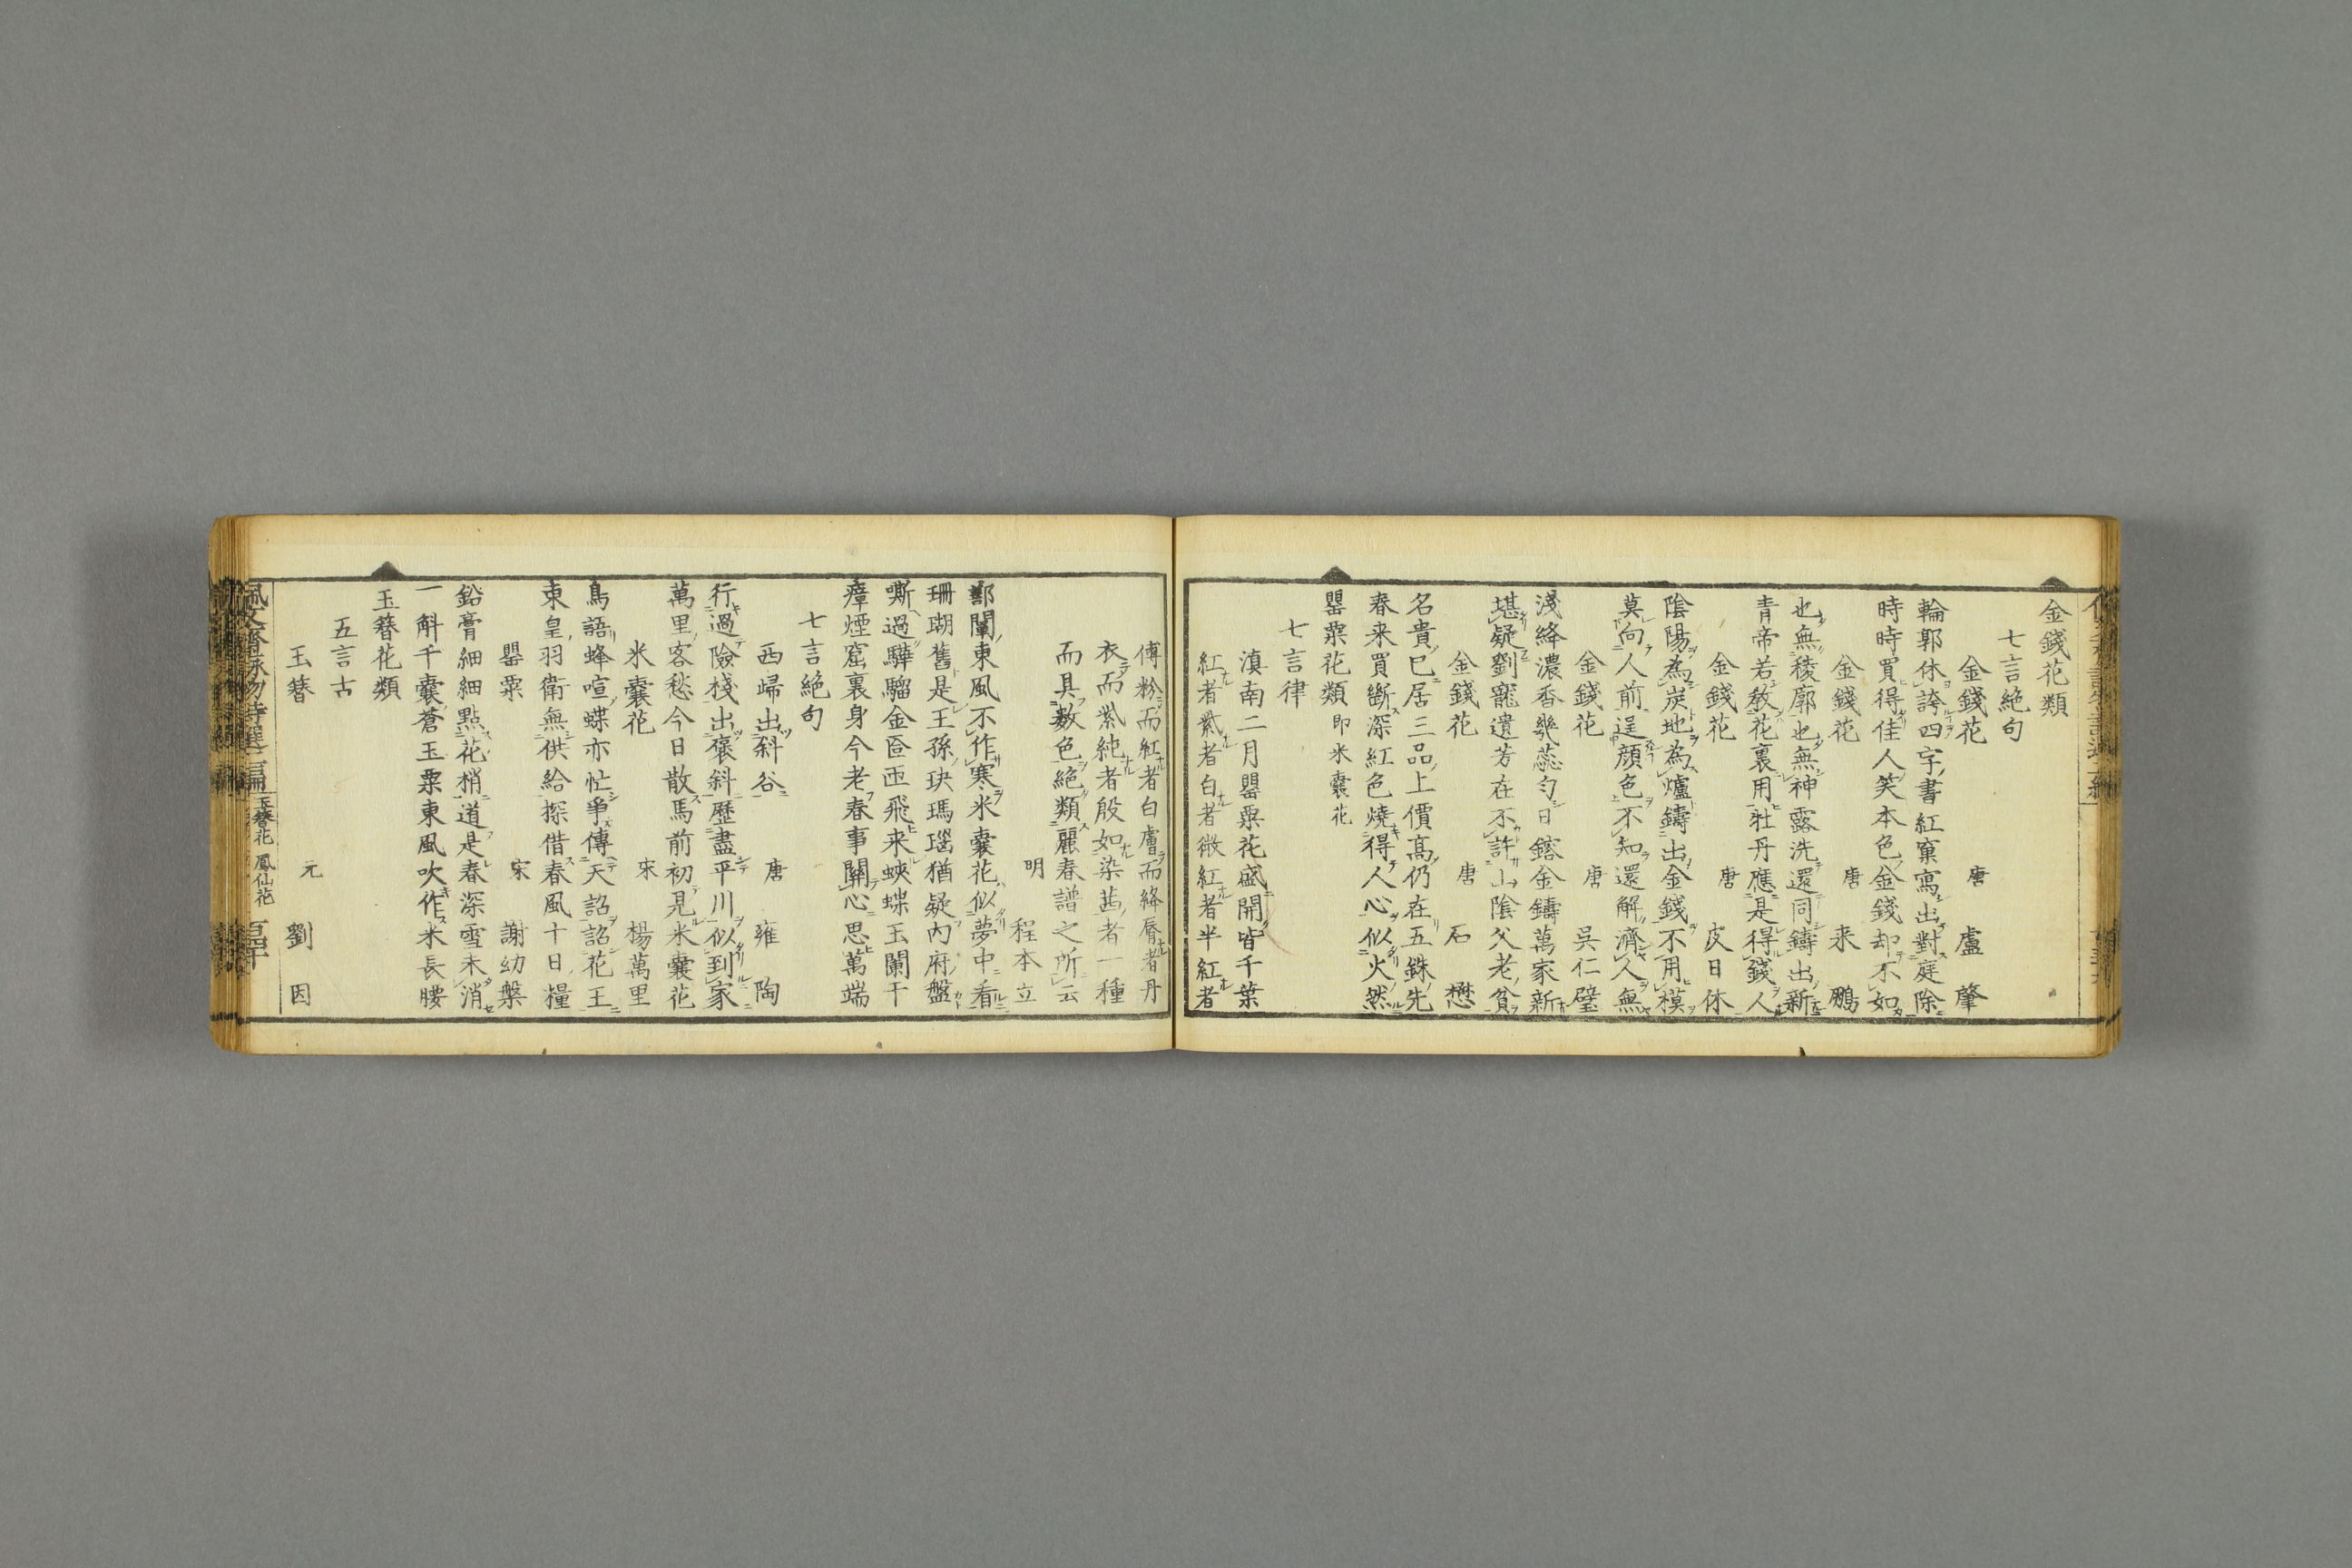 金錢花類
七言絕句
金錢花　唐　盧肇
輪郭休誇四字書紅窠寫出對庭除
時時買得佳人笑本色金錢却不如
金錢花　唐　来鵬
也無稜廓也無神露洗還同鑄出新
青帝若教花裏用牡丹應是得錢人
金錢花　唐　皮日休
陰陽為炭地為爐鑄出金錢不用模
莫向人前逞顏色不知還解濟人無
金錢花　唐　吳仁璧
淺絳濃香幾蕊勻日鎔金鑄萬家新
堪疑劉寵遺芳在不許山陰父老貧
金錢花　唐　石懋
名貴已居三品上價高仍在五銖先
春来買斷深紅色燒得人心似火然
罌粟花類 即米囊花
七言律
滇南二月罌粟花盛開皆千葉
紅者紫者白者微紅者半紅者
傅粉而紅者白膚而絳脣者丹
衣而紫純者殷如染茜者一種
而具數色絕類麗春譜之所云
明　程本立
鄯闡東風不作寒米囊花似夢中看
珊瑚舊是王孫玦瑪瑙猶疑內府盤
嘶過驊騮金匼匝飛来蛺蝶玉闌干
瘴煙窟裏身今老春事關心思萬端
七言絕句
西歸出斜谷　唐　雍陶
行過險棧出褒斜歷盡平川似到家
萬里客愁今日散馬前初見米囊花
米囊花　宋　楊萬里
鳥語蜂喧蝶亦忙爭傳天詔詔花王
東皇羽衛無供給探借春風十日糧
罌粟　宋　謝幼槃
鉛膏細細點花梢道是春深雪未消
一斛千囊蒼玉粟東風吹作米長腰
玉簪花類
五言古
玉簪　元　劉因
佩文齋詠物詩選二編　玉簪花　鳳仙花　百四十